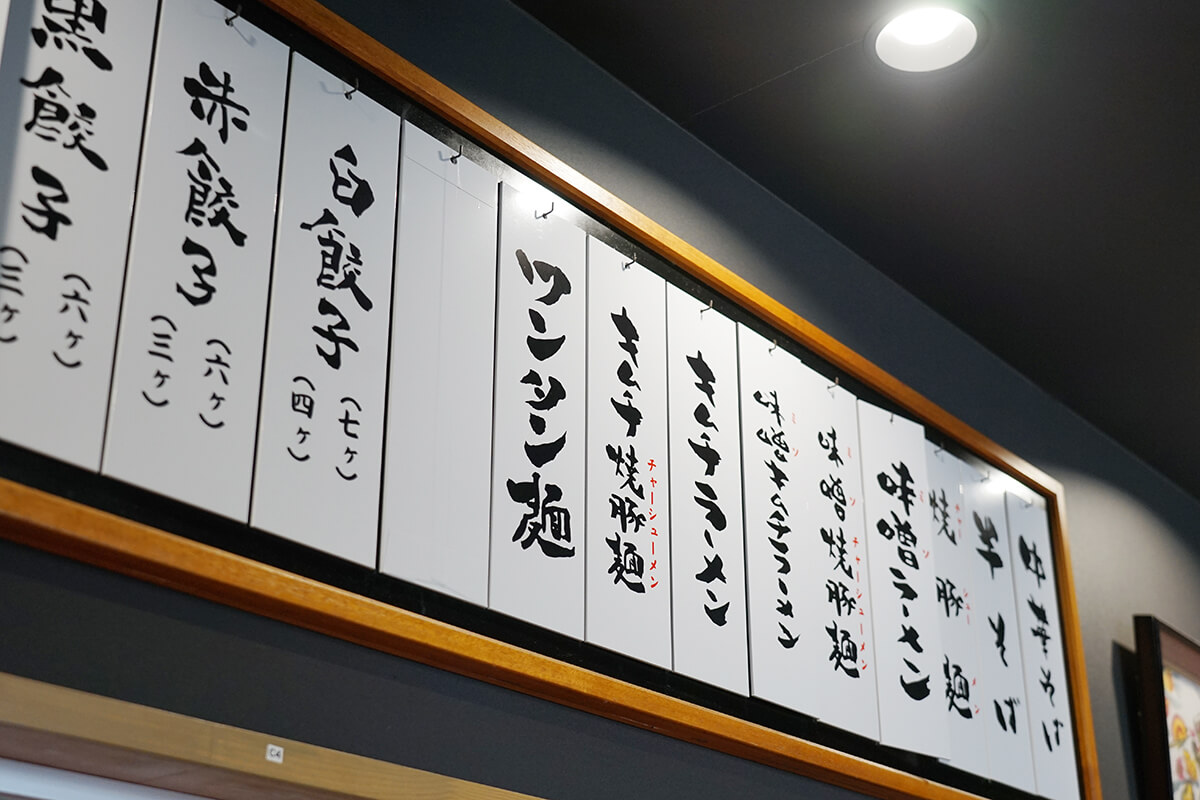 中華そば
半そば
焼豚麺
チャーシューメン
味噌ラーメン
ミソ
味噌焼豚麺
ミソ チャーシューメン
味噌キムチラーメン
ミソ
キムチラーメン
キムチ焼豚麺
チャーシューメン
ワンタン麺
白餃子
(七ヶ)
(四ヶ)
赤餃子
(六ヶ)
(三ヶ)
黒餃子
(六ヶ)
(三ヶ)
C4